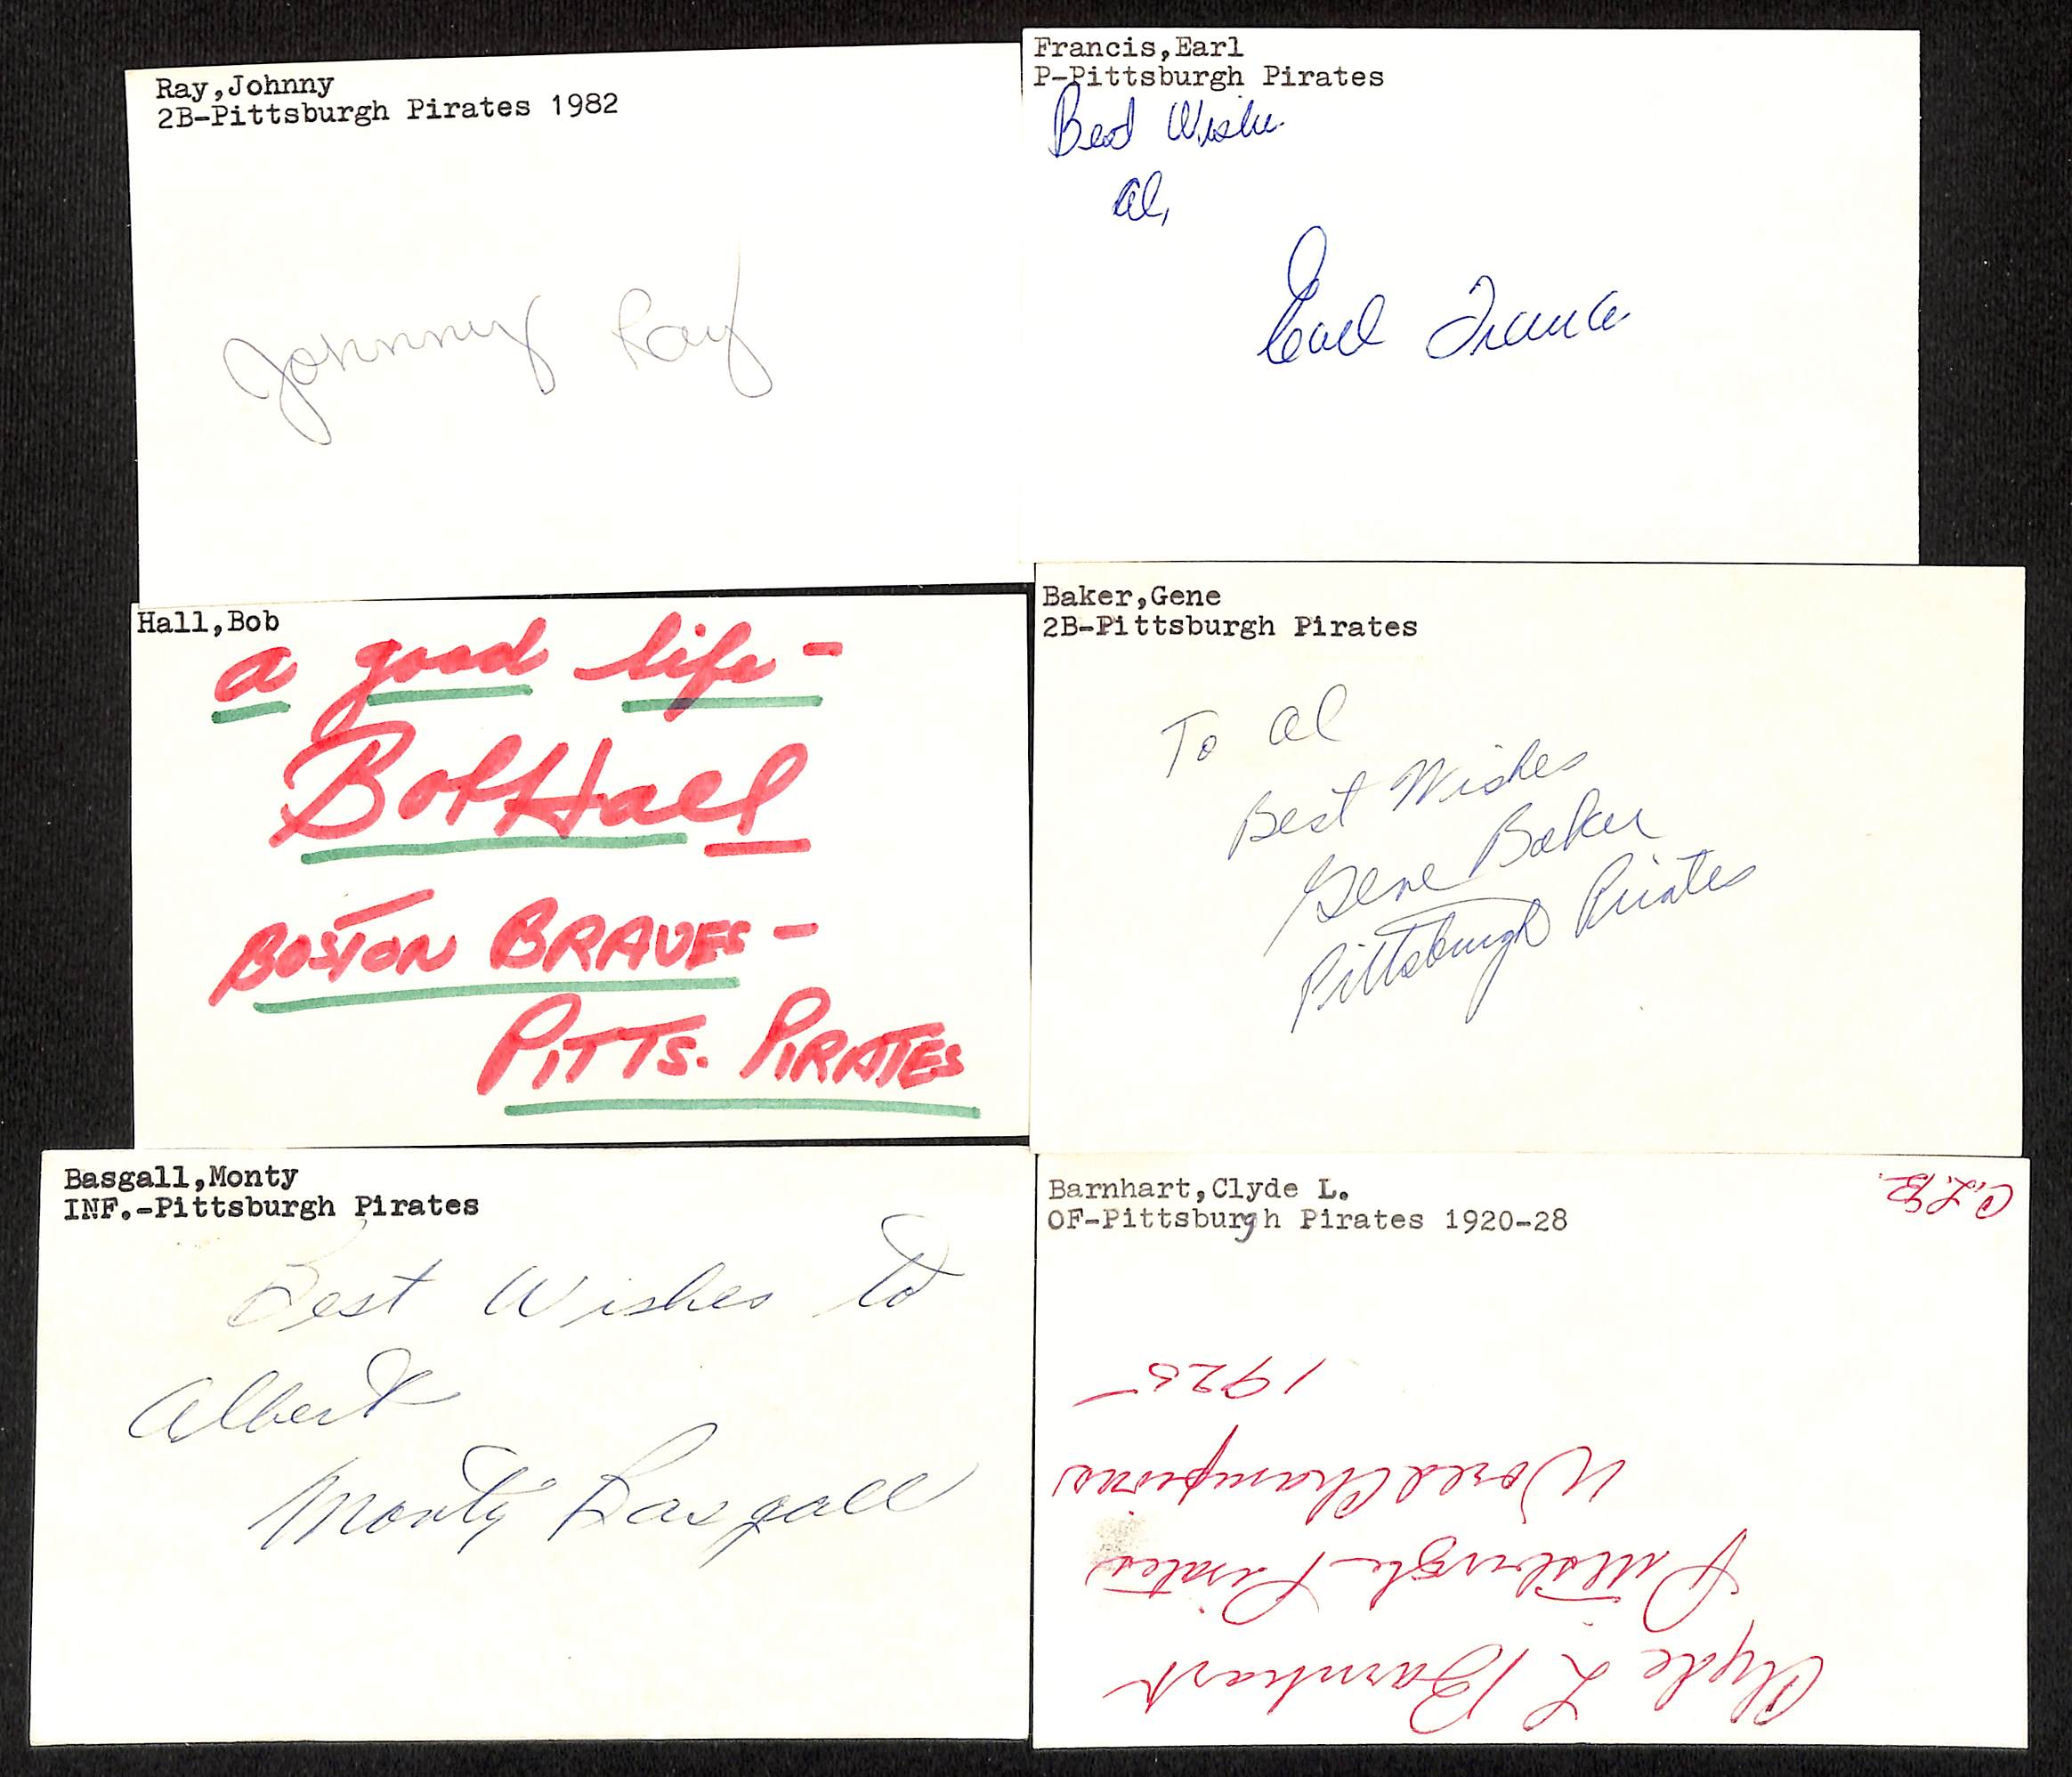 Ray,Johnny
2B-Pittsburgh Pirates 1982
Johnny Ray
Francis,Earl
P-Pittsburgh Pirates
Best Wishes
Al,
Earl Francis
Hall,Bob
a good life-
Bob Hall
BOSTON BRAVES-
PITTS. PIRATES
Baker,Gene
2B-Pittsburgh Pirates
To Al
Best Wishes
Gene Baker
Pittsburgh Pirates
Basgall,Monty
INF.-Pittsburgh Pirates
Best Wishes to
Albert
Monty Basgall
Barnhart,Clyde L.
OF-Pittsburgh Pirates 1920-28
Clyde L Barnhart
Pittsburgh Pirates
World Champions
1925
C.L.B.